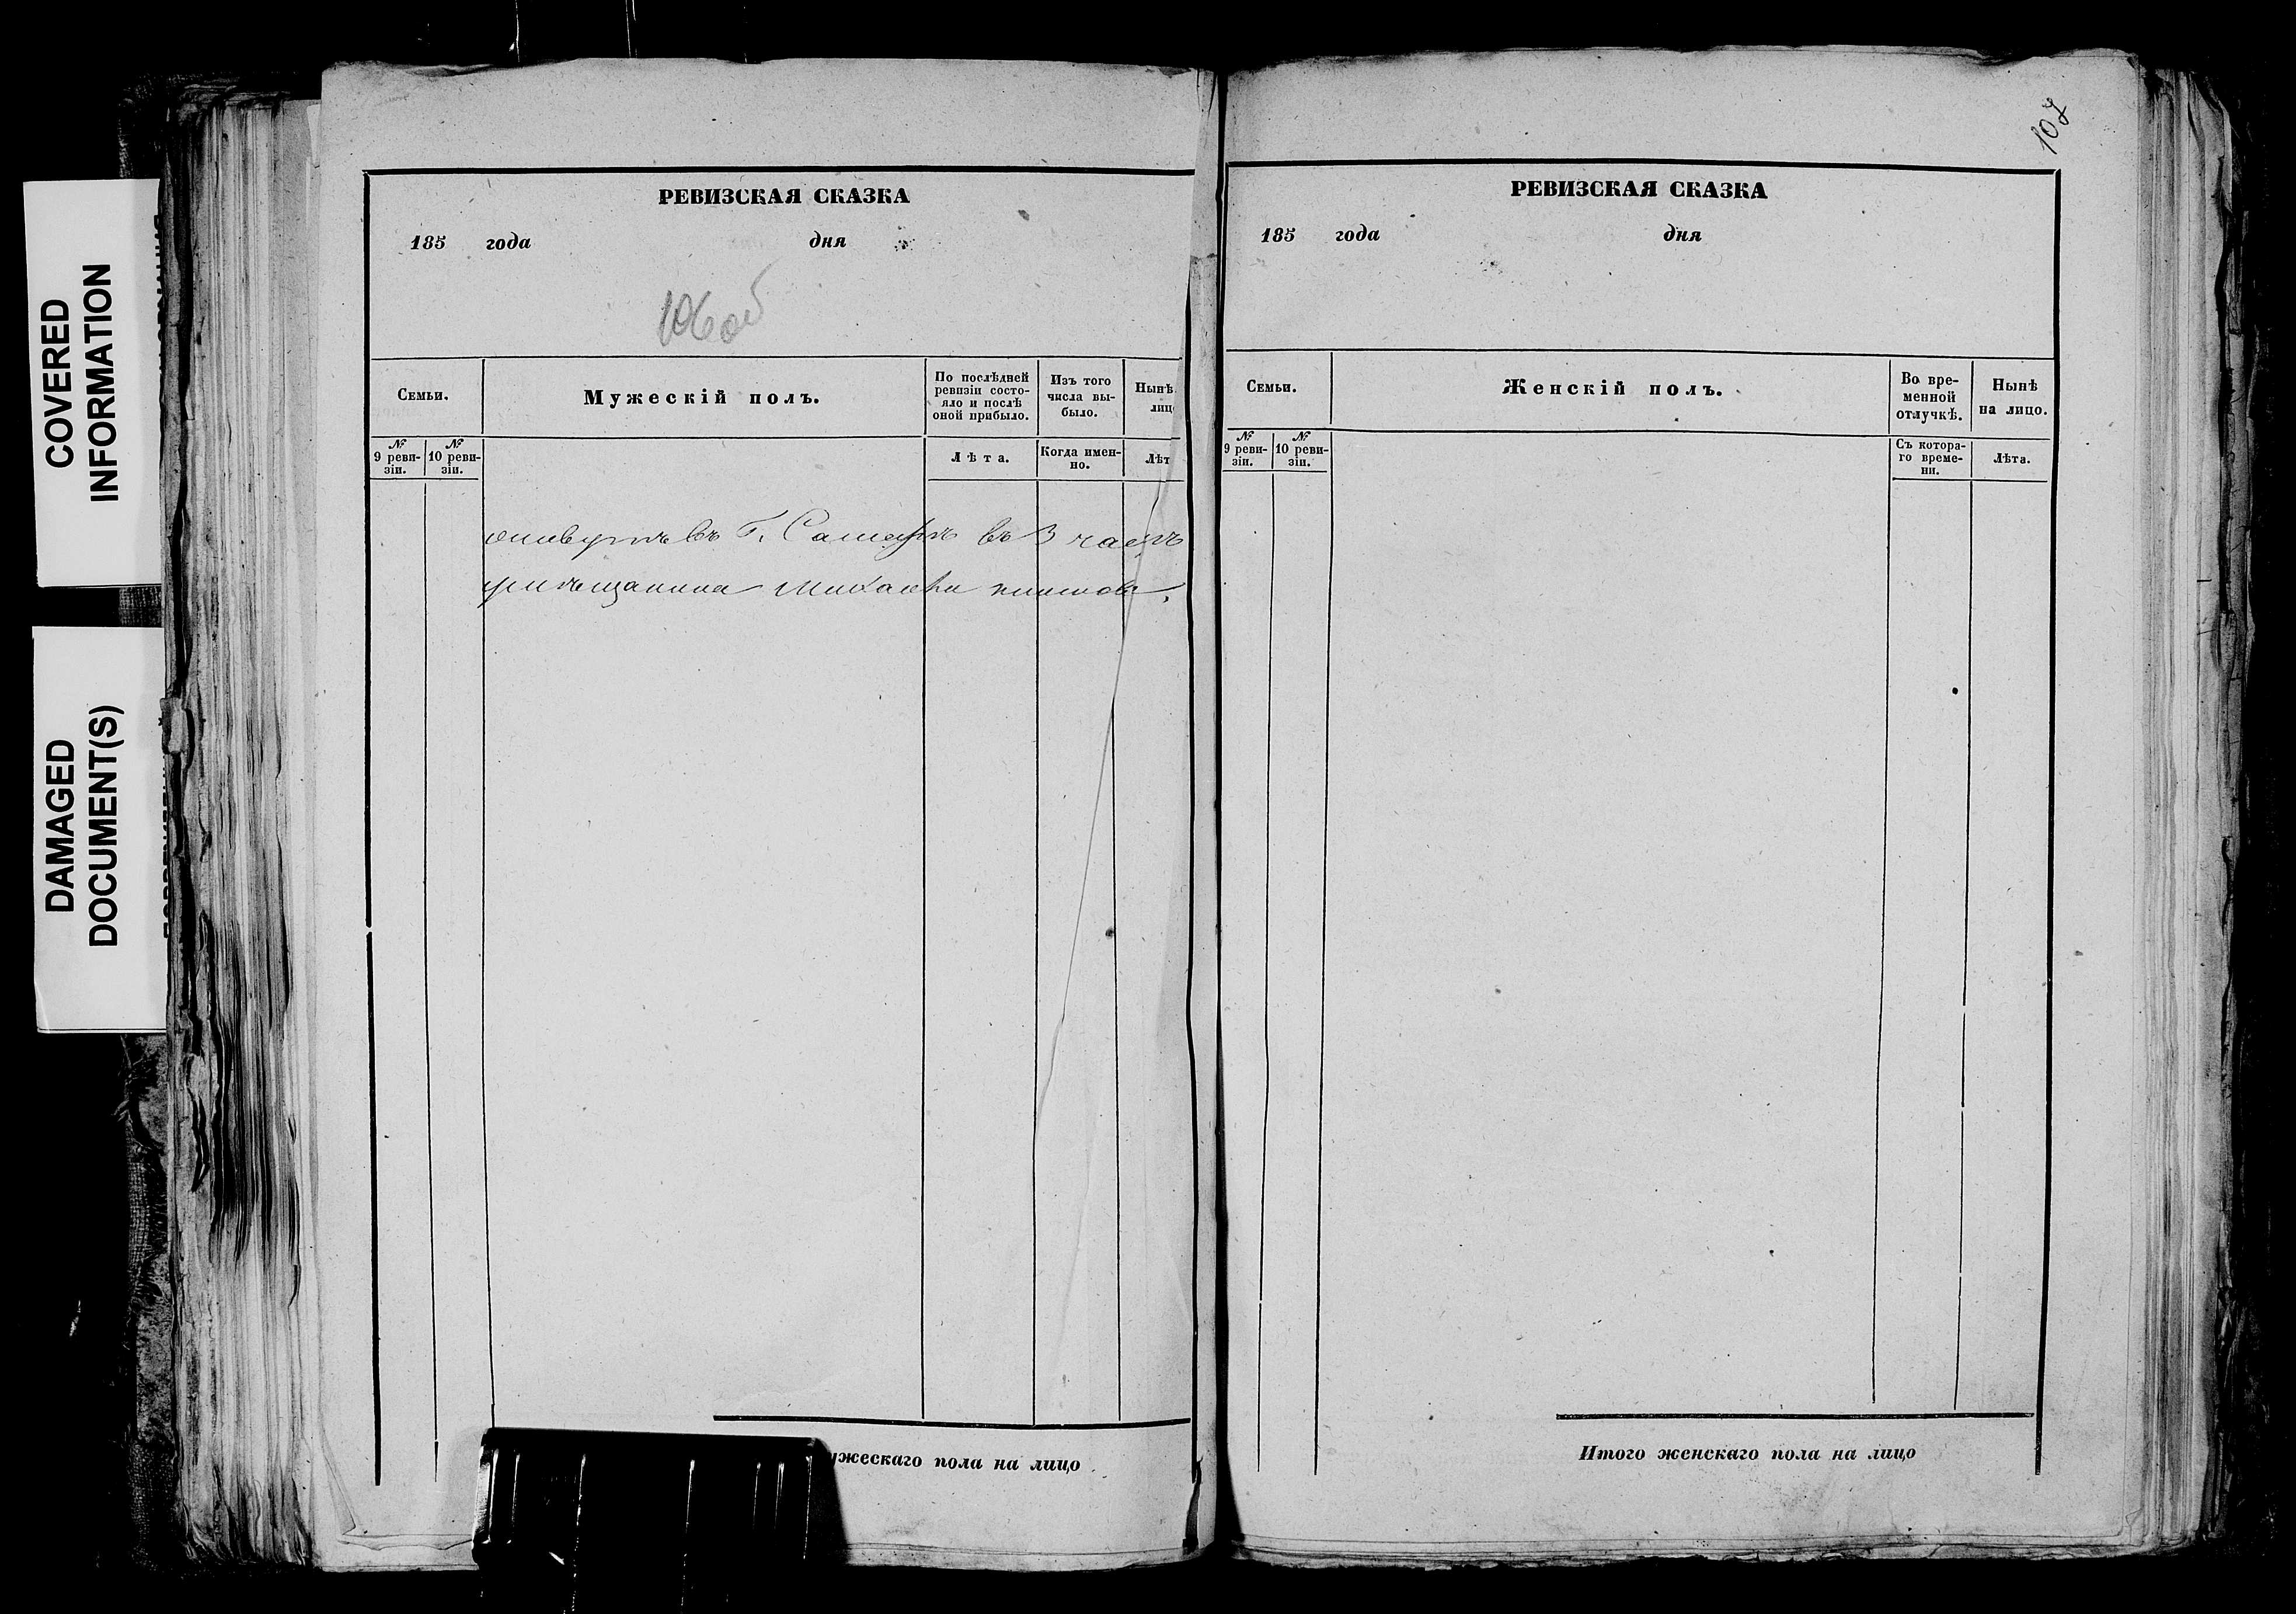 COVERED
INFORMATION
DAMAGED
DOCUMENT(S)
РЕВИЗСКАЯ СКАЗКА
185 года дня
106 об
Семьи.
Мужескій полъ.
По послѣдней ревизіи состо-
яло и послѣ
оной прибыло.
Изъ того
числа вы-
было.
Нынѣ
лиц
№
9 реви-
зіи.
№
10 реви-
зіи.
Лѣта.
Когда имен-
но.
Лѣт
живутъ въ Г. Самарѣ въ 3 част
у мѣщанина
ужескаго пола на лицо
107
РЕВИЗСКАЯ СКАЗКА
185 года дня
Семьи.
Женскій полъ.
Во вре-
менной
отлучкѣ.
Нынѣ
на лицо.
№
9 реви-
зіи.
№
10 реви-
зіи.
Съ котора-
го време-
ни.
Лѣта.
Итого женскаго пола на лицо